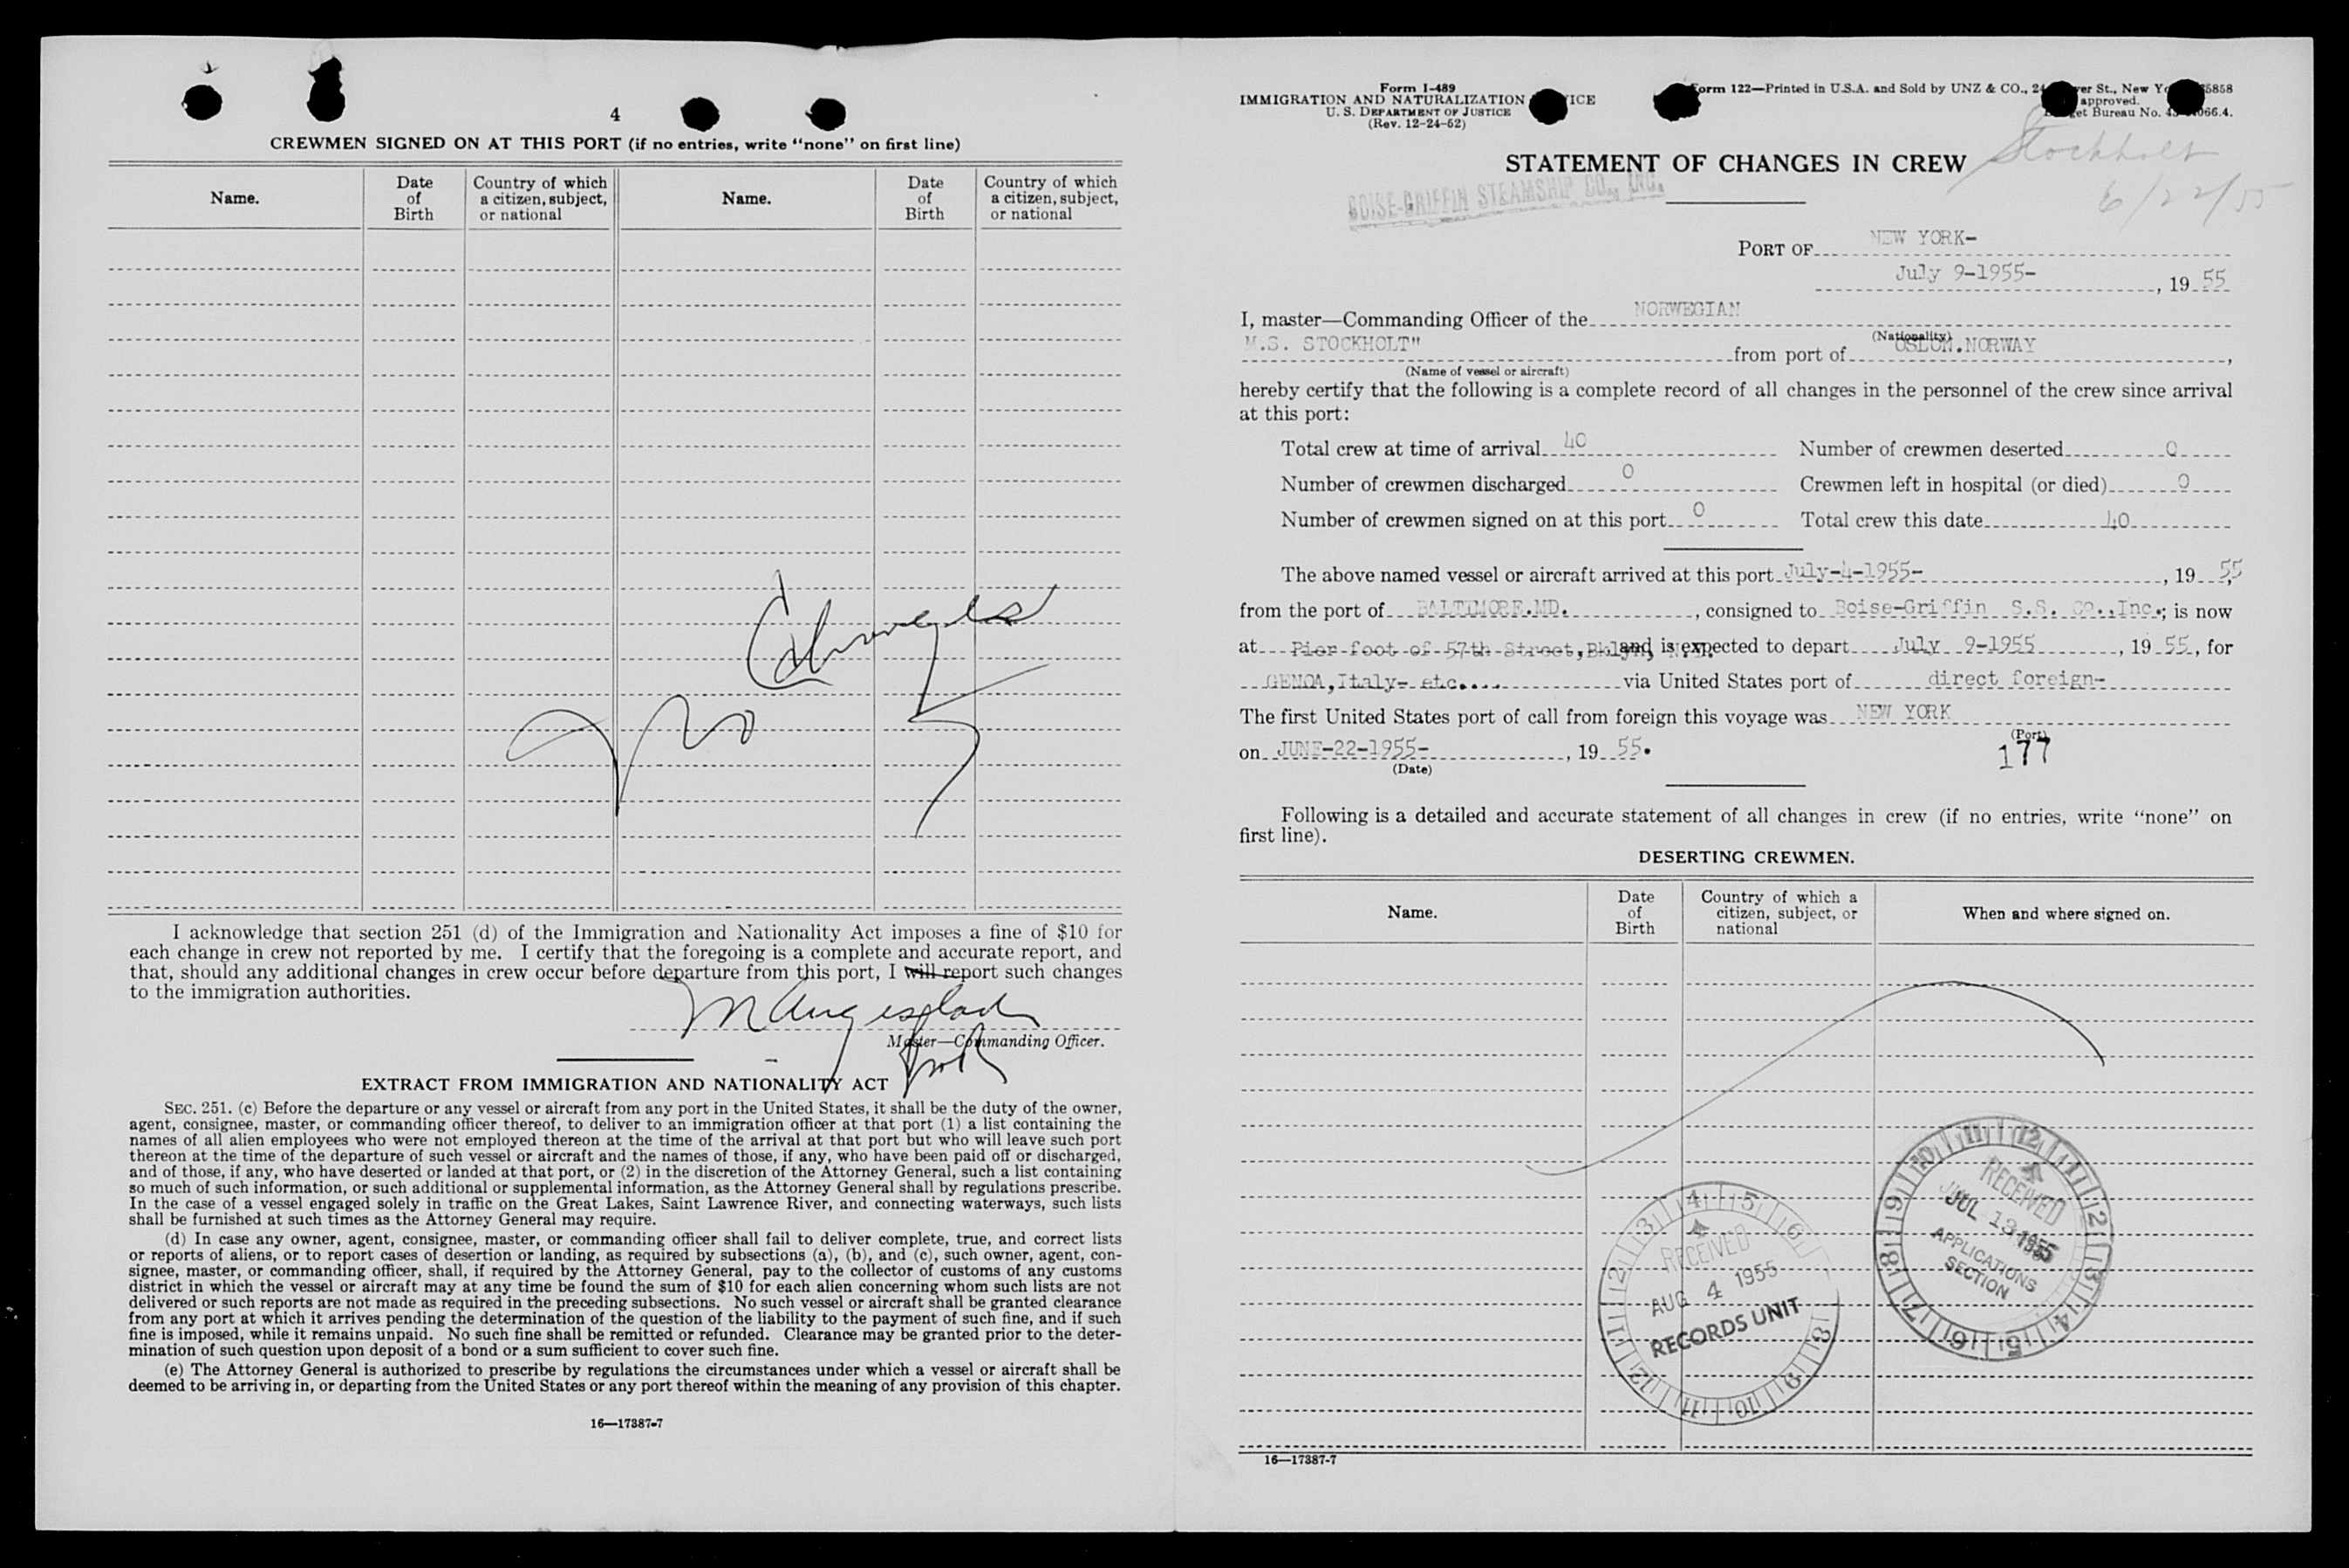 4
CREWMEN SIGNED ON AT THIS PORT (if no entries, write “none” on first line)
Name. Date of Birth Country of which a citizen, subject, or national Name. Date of Birth Country of which a citizen, subject, or national
No Changes
I acknowledge that section 251 (d) of the Immigration and Nationality Act imposes a fine of $10 for
each change in crew not reported by me. I certify that the foregoing is a complete and accurate report, and
that, should any additional changes in crew occur before departure from this port, I will report such changes
to the immigration authorities.
Master—Commanding Officer.
EXTRACT FROM IMMIGRATION AND NATIONALITY ACT
SEC. 251. (c) Before the departure or any vessel or aircraft from any port in the United States, it shall be the duty of the owner,
agent, consignee, master, or commanding officer thereof, to deliver to an immigration officer at that port (1) a list containing the
names of all alien employees who were not employed thereon at the time of the arrival at that port but who will leave such port
thereon at the time of the departure of such vessel or aircraft and the names of those, if any, who have been paid off or discharged,
and of those, if any, who have deserted or landed at that port, or (2) in the discretion of the Attorney General, such a list containing
so much of such information, or such additional or supplemental information, as the Attorney General shall by regulations prescribe.
In the case of a vessel engaged solely in traffic on the Great Lakes, Saint Lawrence River, and connecting waterways, such lists
shall be furnished at such times as the Attorney General may require.
(d) In case any owner, agent, consignee, master, or commanding officer shall fail to deliver complete, true, and correct lists
or reports of aliens, or to report cases of desertion or landing, as required by subsections (a), (b), and (c), such owner, agent, con-
signee, master, or commanding officer, shall, if required by the Attorney General, pay to the collector of customs of any customs
district in which the vessel or aircraft may at any time be found the sum of $10 for each alien concerning whom such lists are not
delivered or such reports are not made as required in the preceding subsections. No such vessel or aircraft shall be granted clearance
from any port at which it arrives pending the determination of the question of the liability to the payment of such fine, and if such
fine is imposed, while it remains unpaid. No such fine shall be remitted or refunded. Clearance may be granted prior to the deter-
mination of such question upon deposit of a bond or a sum sufficient to cover such fine.
(e) The Attorney General is authorized to prescribe by regulations the circumstances under which a vessel or aircraft shall be
deemed to be arriving in, or departing from the United States or any port thereof within the meaning of any provision of this chapter.
16—17387-7
Form I-489
IMMIGRATION AND NATURALIZATION
U. S. DEPARTMENT OF JUSTICE
(Rev. 12-24-52)
Form 122—Printed in U.S.A. and Sold by UNZ & CO., St., New
approved.
Bureau No.
Stockholt
6/22/55
STATEMENT OF CHANGES IN CREW
BOISE-GRIFFIN STEAMSHIP CO., INC.
PORT OF NEW YORK-
July 9-1955- , 19 55
I, master—Commanding Officer of the NORWEGIAN
(Nationality)
M.S. STOCKHOLT" from port of OSLON.NORWAY ,
(Name of vessel or aircraft)
hereby certify that the following is a complete record of all changes in the personnel of the crew since arrival
at this port:
Total crew at time of arrival 40 Number of crewmen deserted 0
Number of crewmen discharged 0 Crewmen left in hospital (or died) 0
Number of crewmen signed on at this port 0 Total crew this date 40
The above named vessel or aircraft arrived at this port July-4-1955- , 19 55
from the port of BALTIMORE.MD. , consigned to Boise-Griffin S.S. CO.,Inc.; is now
at Pier foot of 57th Street, Bklyn, N.Y. and is expected to depart July 9-1955 , 19 55, for
GENOA,Italy- etc.... via United States port of direct foreign-
The first United States port of call from foreign this voyage was NEW YORK
(Port)
on JUNE-22-1955- , 19 55.
(Date)
177
Following is a detailed and accurate statement of all changes in crew (if no entries, write “none” on
first line).
DESERTING CREWMEN.
Name. Date of Birth Country of which a citizen, subject, or national When and where signed on.
RECEIVED
JUL 13 1955
APPLICATIONS
SECTION
RECEIVED
AUG 4 1955
RECORDS UNIT
16—17387-7